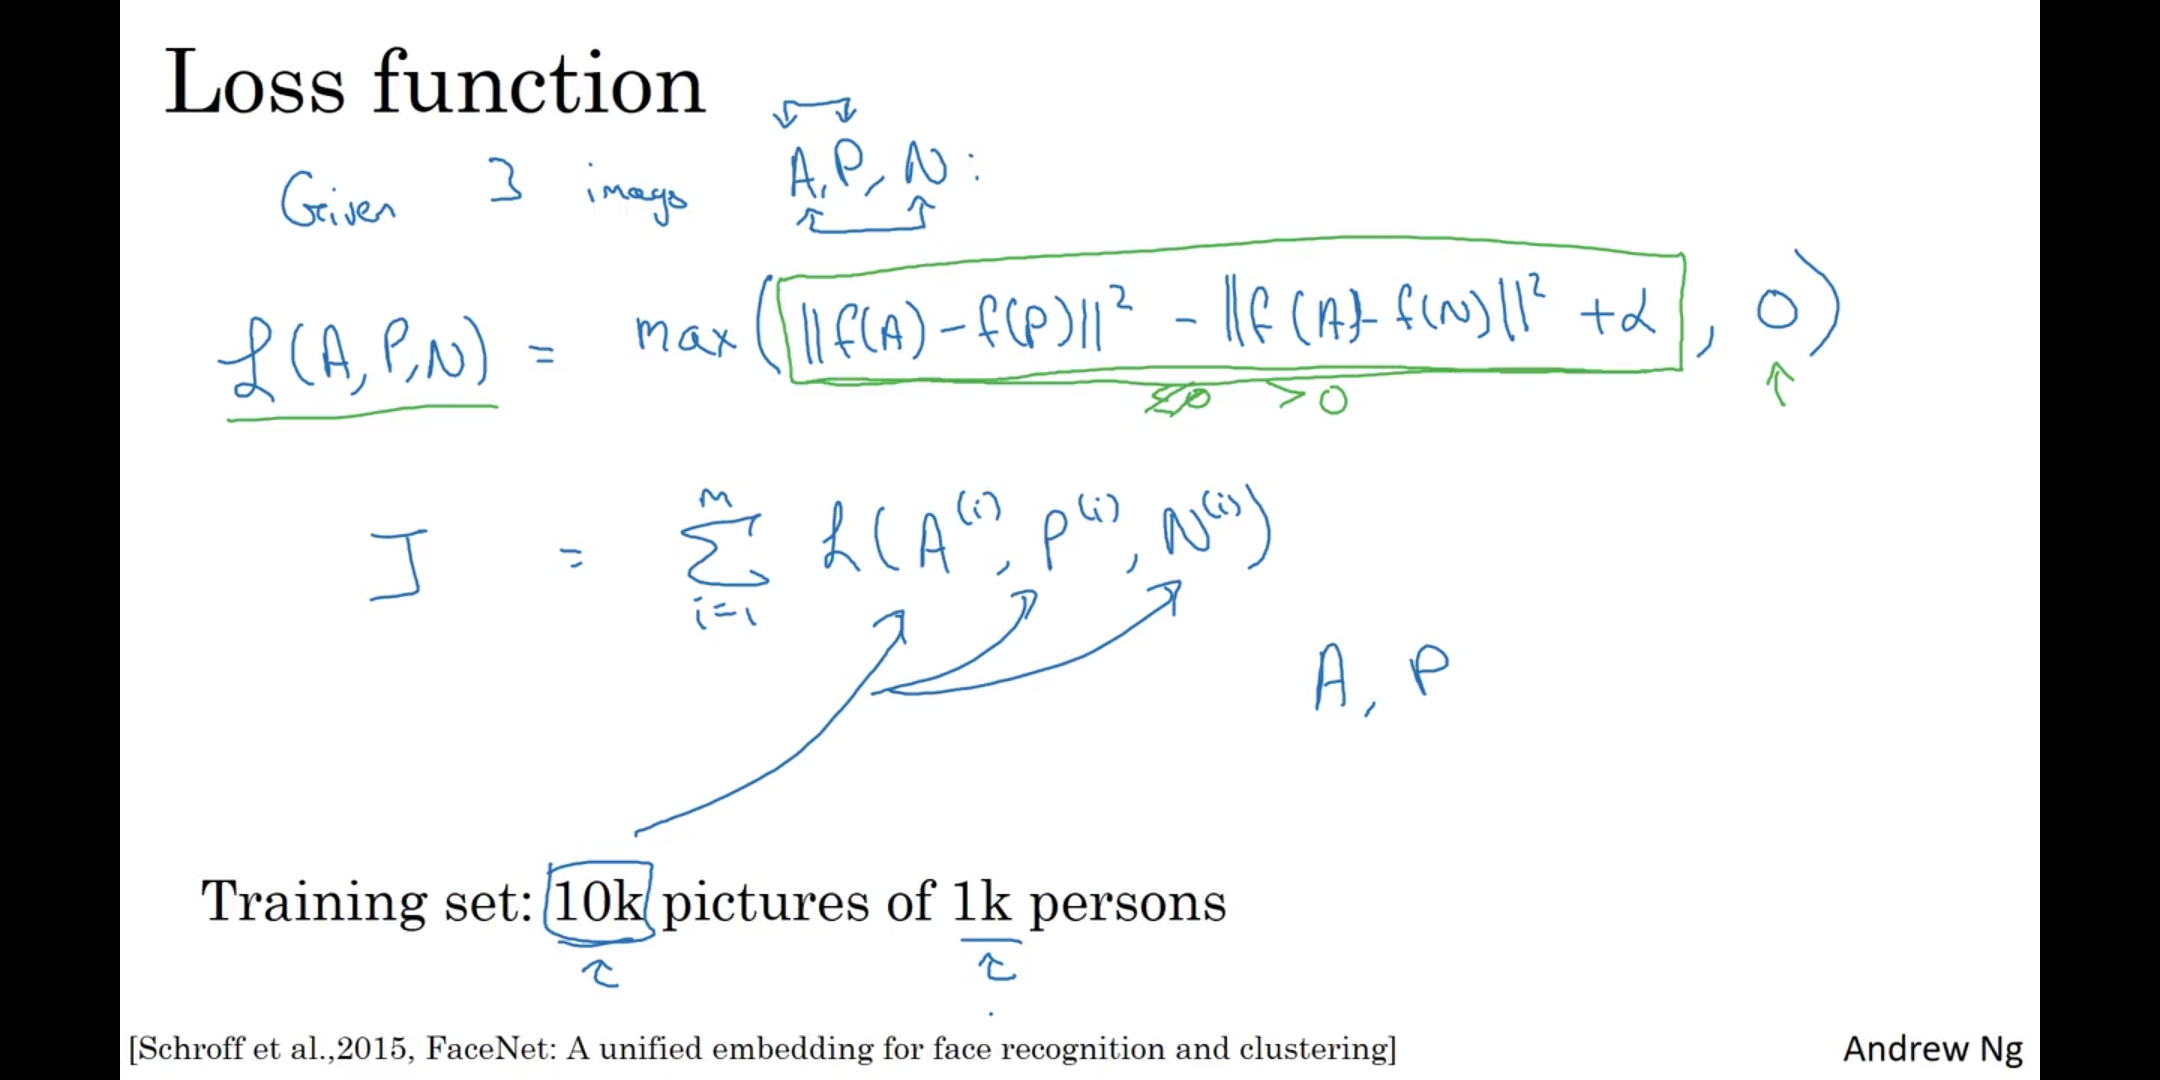 Loss function
Given 3 images A, P, N :
ℒ(A, P, N) = max( ||f(A) - f(P)||² - ||f(A) - f(N)||² + α , 0 )
≤ 0 > 0
M
J = Σ ℒ(A⁽ⁱ⁾, P⁽ⁱ⁾, N⁽ⁱ⁾)
i=1
A, P
Training set: 10k pictures of 1k persons
[Schroff et al.,2015, FaceNet: A unified embedding for face recognition and clustering]
Andrew Ng